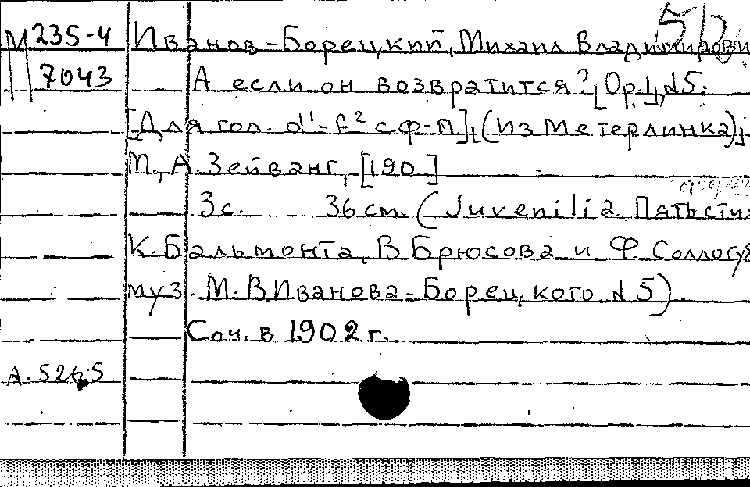 М 235-4 Иванов-Борецкий, Михаил Владимирови
7043 А если он возвратится? Ор.1, №5.
[Для гол. d'-f² с ф-п], (Из Метерлинка),
М., А. Зейванг, [190.]
3 с. 36 см. (Juvenilia. Пять сти
К. Бальмонта, В. Брюсова и Ф. Соллогуб
муз. М.В. Иванова-Борецкого №5)
Соч. в 1902 г.
А. 5265